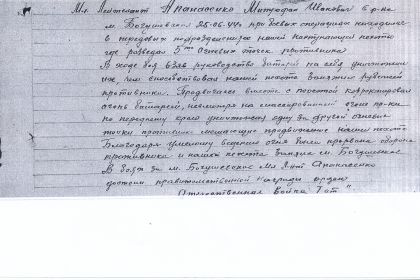 Мл. Лейтенант Апанасенко Митрофан Иванович в р-не
м. Богушевская 25.06.44г при боевых операциях находился
в передовых подразделениях нашей наступающей пехоты
где разведал 5 огневых точек противника
В ходе боя взяв руководство батареей на себя уничтожил
их, чем способствовал нашей пехоте занятию рубежей
противника. Продвигаясь вместе с пехотой корректировал
огонь батарей, невзирая на огонь пр-ка
по переднему краю уничтожил одну за другой огневые
точки противника мешающие продвижению нашей пехоты
Благодаря умелому ведению огня была прорвана оборона
противника и нашей пехотой занята м. Богушевское
В боях за м. Богушевское Мл. Л-нт Апанасенко
достоин правительственной награды орден
"Отечественная Война